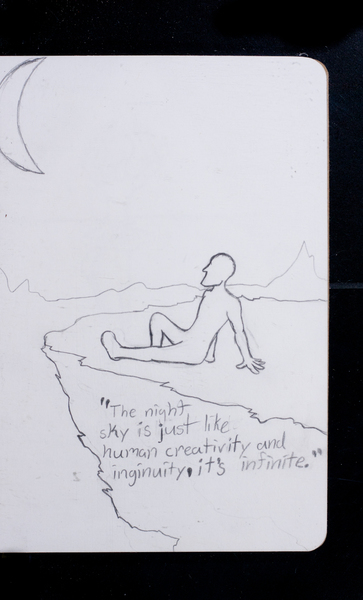 "The night
sky is just like
human creativity and
inginuity, it's infinite."